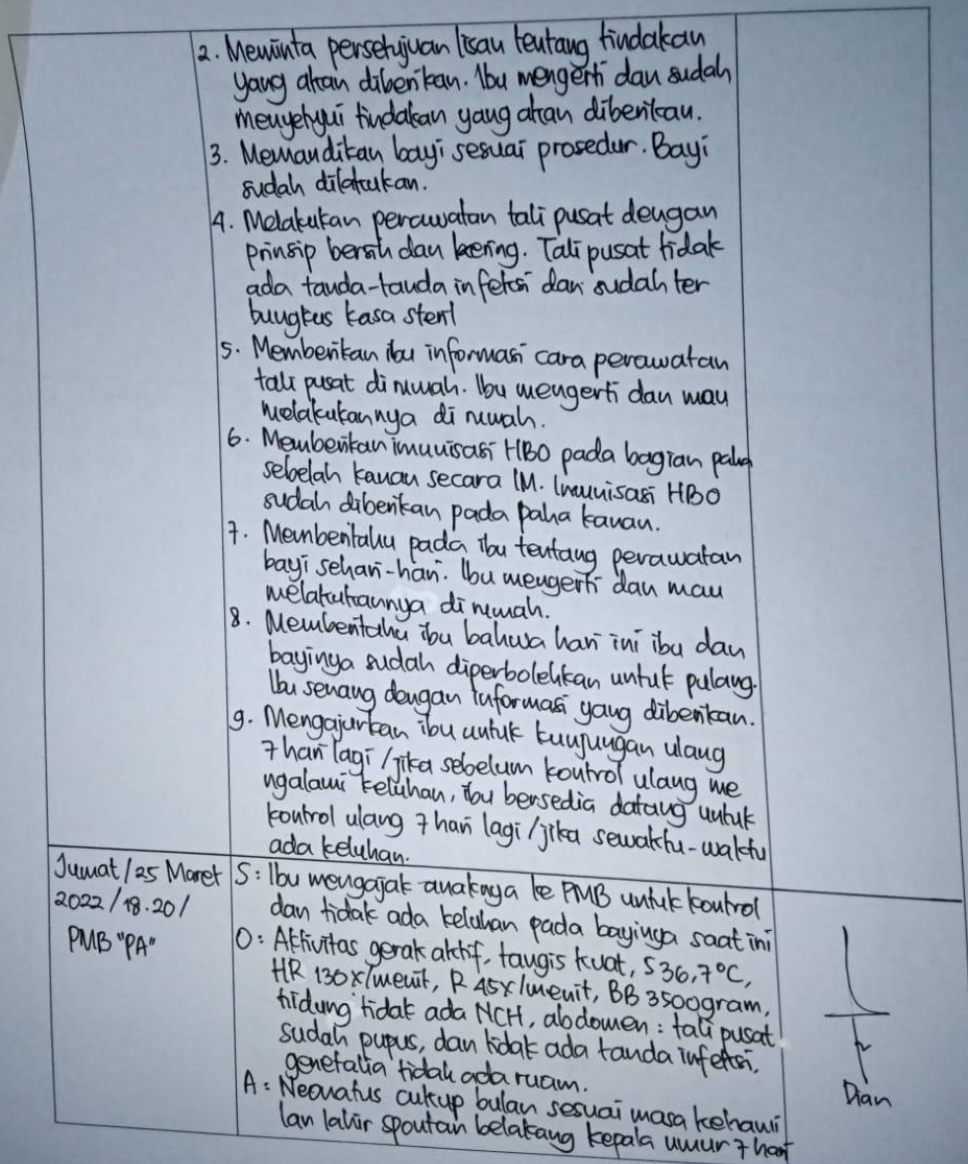 2. Meminta persetujuan lisan tentang tindakan
yang akan diberikan. Ibu mengerti dan sudah
menyetujui tindakan yang akan diberikan.
3. Memandikan bayi sesuai prosedur. Bayi
sudah dilakukan.
4. Melakukan perawatan tali pusat dengan
prinsip bersih dan kering. Tali pusat tidak
ada tanda-tanda infeksi dan sudah ter
bungkus kasa steril
5. Memberikan ibu informasi cara perawatan
tali pusat di rumah. Ibu mengerti dan mau
melakukannya di rumah.
6. Memberikan imunisasi HBO pada bagian paha
sebelah kanan secara IM. Imunisasi HBO
sudah diberikan pada paha kanan.
7. Memberitahu pada ibu tentang perawatan
bayi sehari-hari. Ibu mengerti dan mau
melakukannya di rumah.
8. Memberitahu ibu bahwa hari ini ibu dan
bayinya sudah diperbolehkan untuk pulang.
Ibu senang dengan informasi yang diberikan.
9. Mengajurkan ibu untuk kunjungan ulang
7 hari lagi / jika sebelum kontrol ulang me
ngalami keluhan, ibu bersedia datang untuk
kontrol ulang 7 hari lagi / jika sewaktu-waktu
ada keluhan.
Jumat / 25 Maret
2022 / 18.20 /
PMB "PA"
S: Ibu mengajak anaknya ke PMB untuk kontrol
dan tidak ada keluhan pada bayinya saat ini
O: Aktivitas gerak aktif, tangis kuat, S 36,7°C,
HR 130x/menit, R 45x/menit, BB 3500gram,
hidung tidak ada NCH, abdomen: tali pusat
sudah pupus, dan tidak ada tanda infeksi,
genetalia tidak ada ruam.
A: Neonatus cukup bulan sesuai masa kehami
lan lahir spontan belakang kepala umur 7 hari
Dian